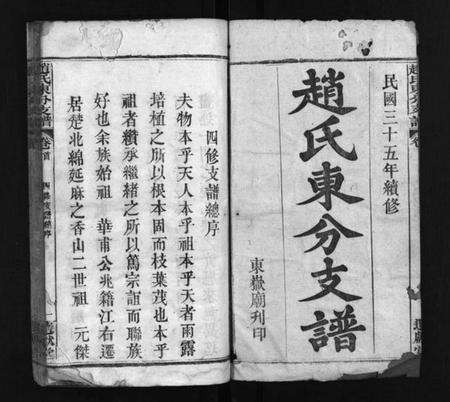 民國三十五年續修
趙氏東分支譜
東嶽廟刊印
四修支譜總序
夫物本乎天人本乎祖本乎天者雨露
培植之所以根本固而枝葉茂也本乎
祖者纘承繼緒之所以篤宗誼而聯族
好也余族始祖 華甫公兆籍江右遷
居楚北綿延麻之香山二世祖 元傑
趙氏東分支譜 卷首